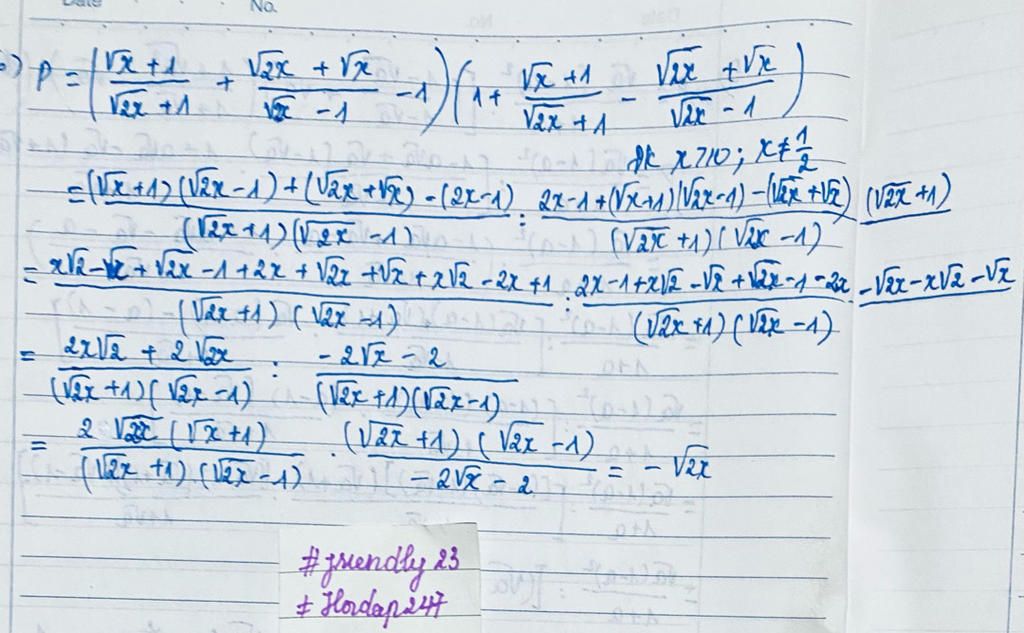 Date No.
b) P = (\frac{√x + 1}{√2x + 1} + \frac{√2x + √x}{√2x - 1} - 1) (1 + \frac{√x + 1}{√2x + 1} - \frac{√2x + √x}{√2x - 1})
đk x ≥ 0; x ≠ \frac{1}{2}
= \frac{(√x+1)(√2x - 1) + (√2x + √x) - (2x - 1)}{(√2x + 1)(√2x - 1)} : \frac{2x - 1 + (√x+1)(√2x - 1) - (√2x + √x)(√2x + 1)}{(√2x + 1)(√2x - 1)}
= \frac{x√2 - √x + √2x - 1 + 2x + √2x + √x + x√2 - 2x + 1}{(√2x + 1)(√2x - 1)} : \frac{2x - 1 + x√2 - √x + √2x - 1 - 2x - √2x - x√2 - √x}{(√2x + 1)(√2x - 1)}
= \frac{2x√2 + 2√2x}{(√2x + 1)(√2x - 1)} : \frac{-2√x - 2}{(√2x + 1)(√2x - 1)}
= \frac{2√2x (√x + 1)}{(√2x + 1).(√2x - 1)} . \frac{(√2x + 1)(√2x - 1)}{-2√x - 2} = -√2x
#friendly 23
# Hoidap247